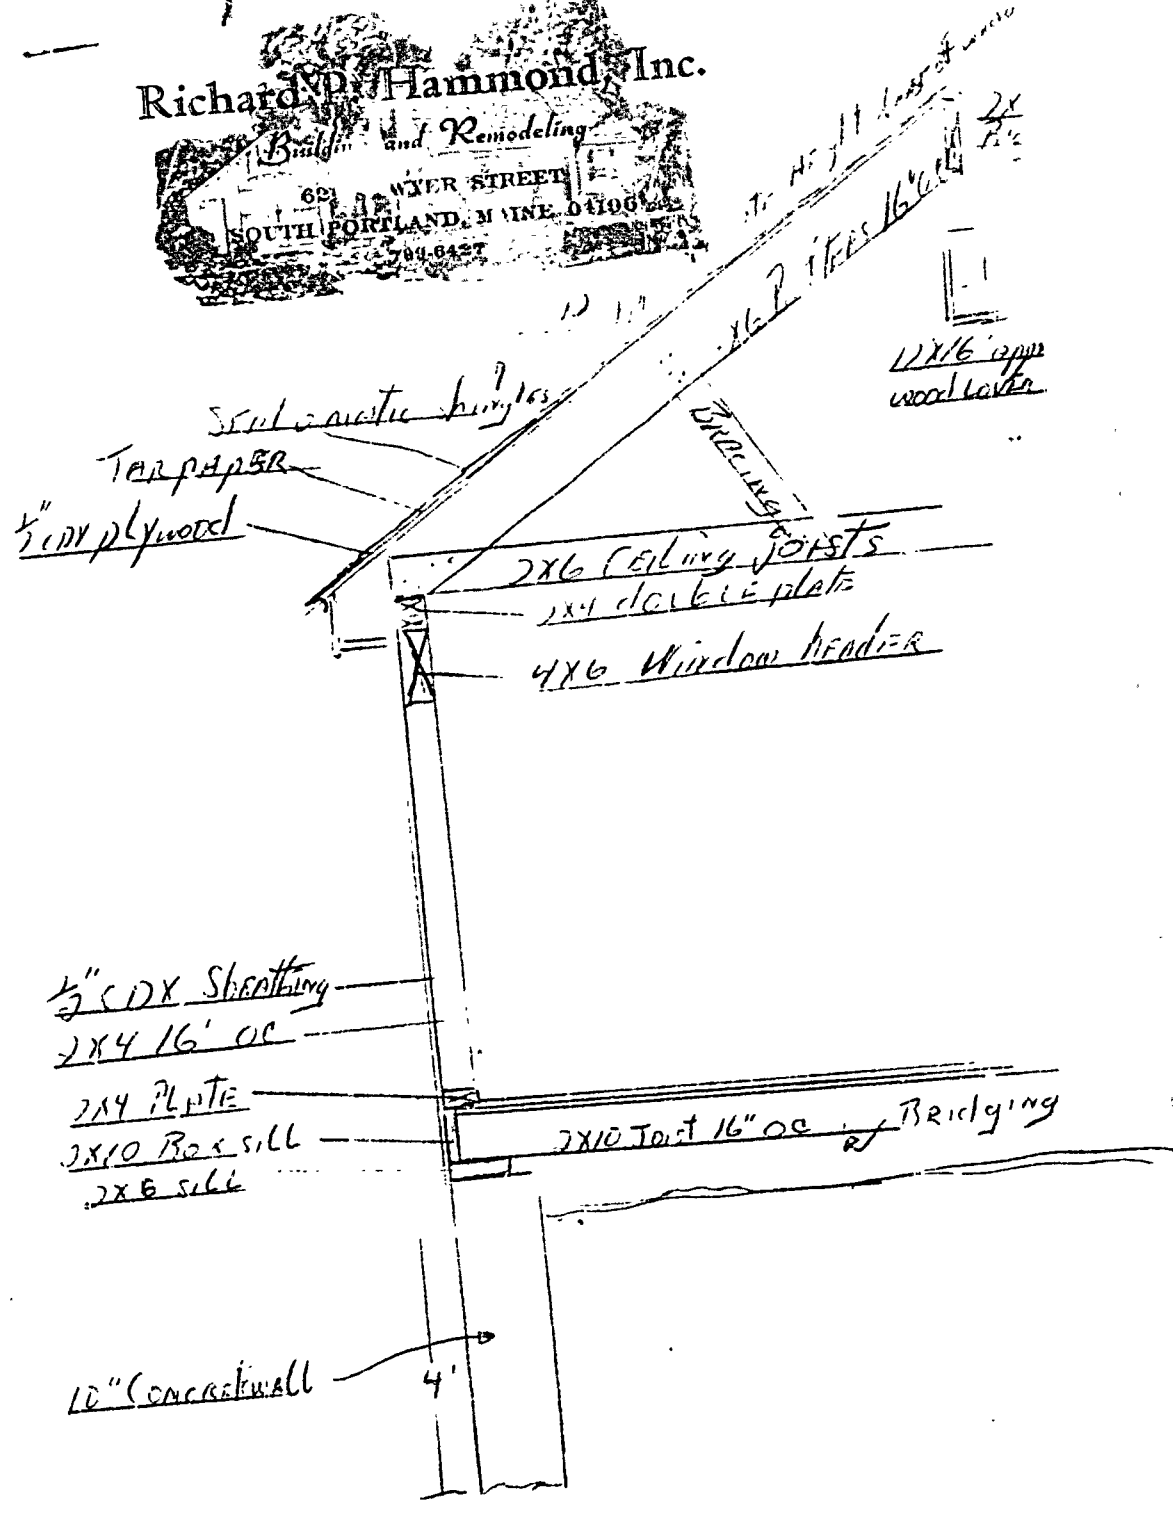 Richard P. Hammond, Inc.
Building and Remodeling
62 WYER STREET
SOUTH PORTLAND, MAINE 04106
799-6427
2x
16" OC
12X16 appr
wood Lover
Seal o matic shingles
TARPAPER
1/2" CDX plywood
BRACING
2X6 CEiling joists
2X4 double plate
4X6 Window header
1/2" CDX Sheathing
2X4 16' OC
2X4 PLATE
2X10 Box sill
2X6 sill
2X10 Joist 16" OC w/ Bridging
10" Concrete wall
4'